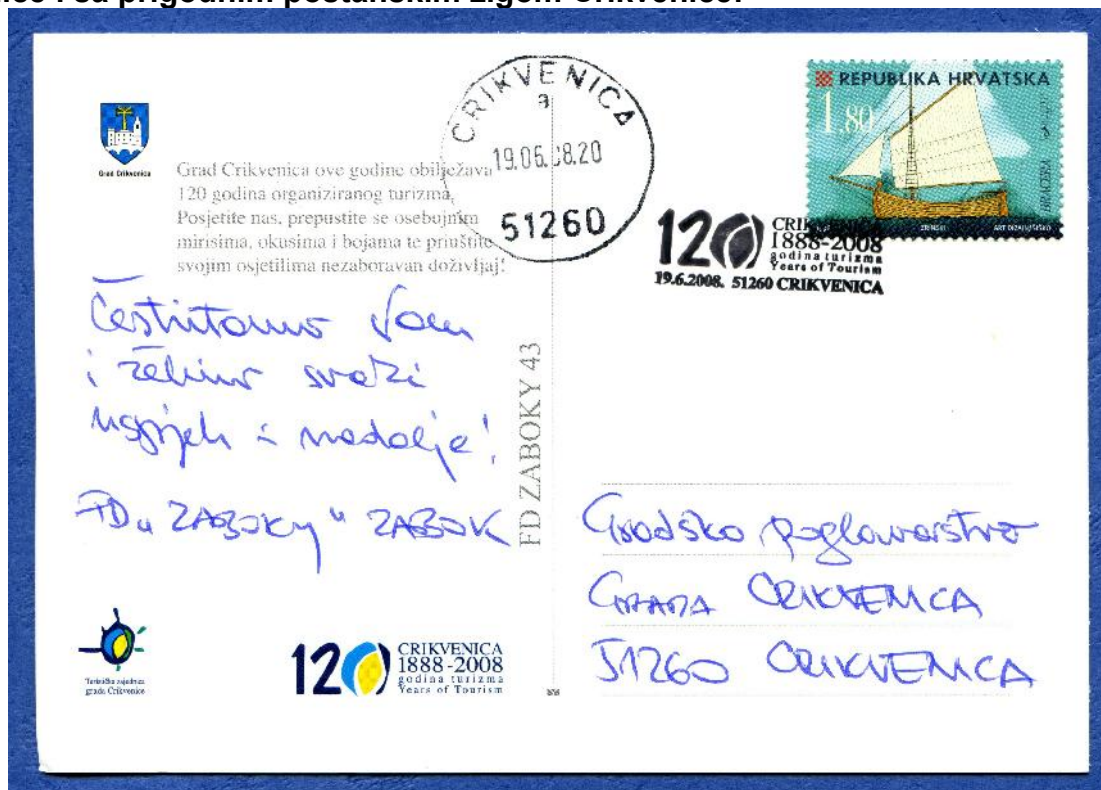 i sa prigodnim poštanskim žigom Crikvenice.
Grad Crikvenica
Grad Crikvenica ove godine obilježava
120 godina organiziranog turizma.
Posjetite nas, prepustite se osebujnim
mirisima, okusima i bojama te priuštite
svojim osjetilima nezaboravan doživljaj!
CRIKVENICA
a
19.06. 08.20
51260
REPUBLIKA HRVATSKA
1.80
ZRINSKI
120 CRIKVENICA
1888-2008
godina turizma
Years of Tourism
19.6.2008. 51260 CRIKVENICA
Čestitamo Vam
i želimo svaki
uspjeh i nadalje!
FD „ZABOKY“ ZABOK
FD ZABOKY 43
Gradsko poglavarstvo
GRADA CRIKVENICA
51260 CRIKVENICA
Turistička zajednica
grada Crikvenice
120 CRIKVENICA
1888-2008
godina turizma
Years of Tourism